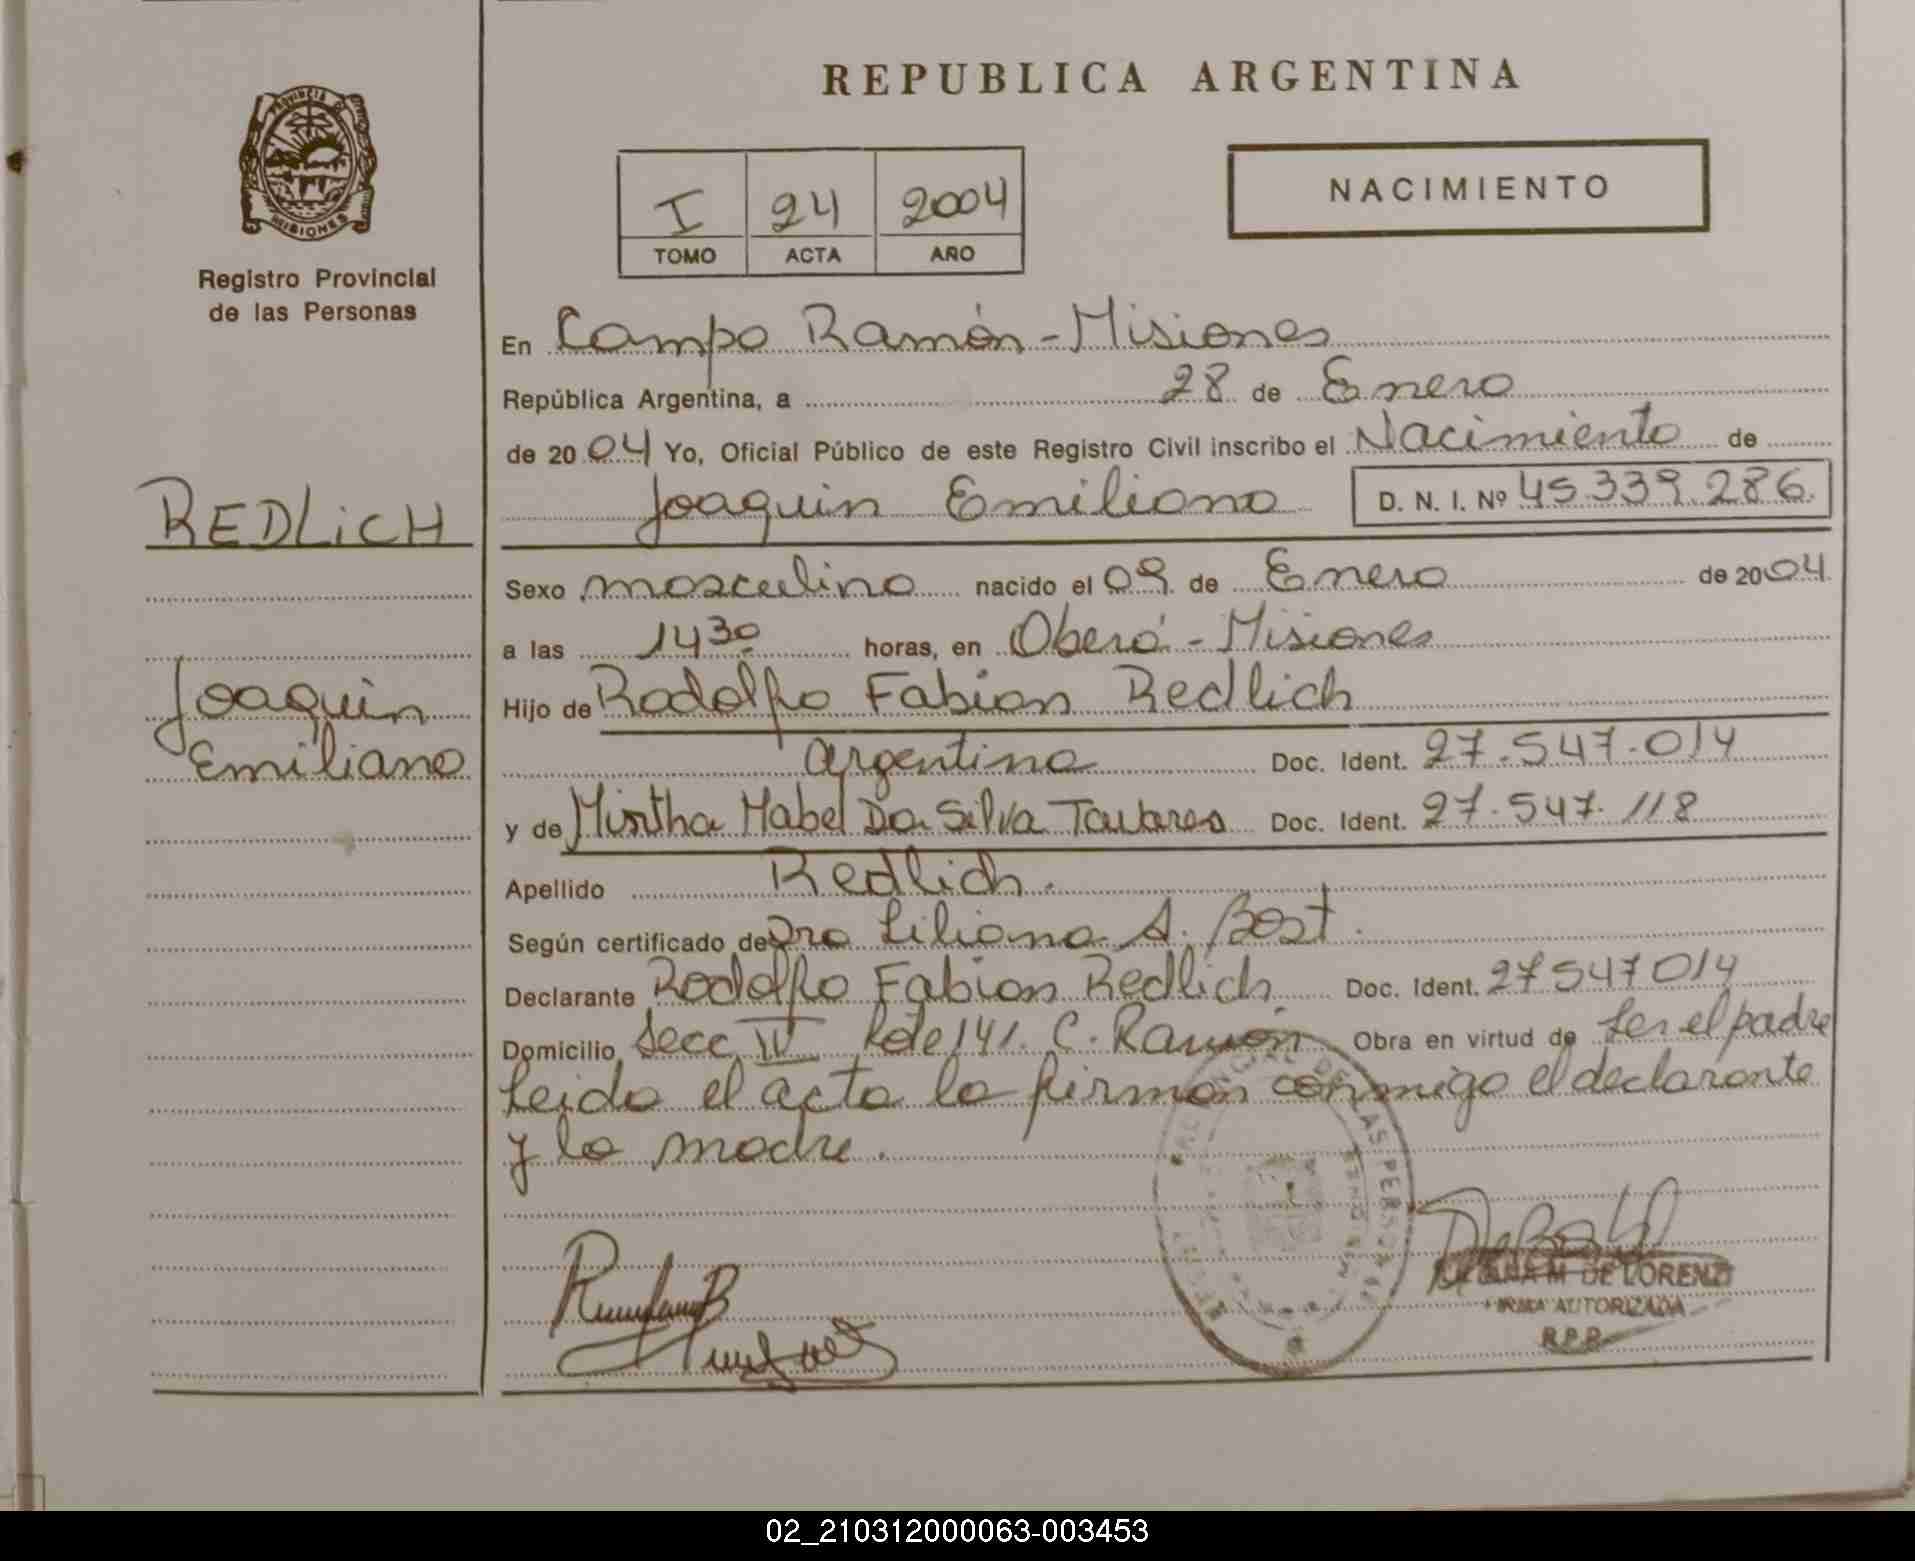 REPUBLICA ARGENTINA
PROVINCIA DE
MISIONES
Registro Provincial
de las Personas
I 24 2004
TOMO ACTA AÑO
NACIMIENTO
En Campo Ramón - Misiones
República Argentina, a 28 de Enero
de 2004 Yo, Oficial Público de este Registro Civil inscribo el Nacimiento de
Joaquin Emiliano D. N. I. Nº 45.339.286.
REDLiCH
Joaquin
Emiliano
Sexo masculino nacido el 09 de Enero de 2004
a las 14 30 horas, en Oberá - Misiones
Hijo de Rodolfo Fabian Redlich
argentino Doc. Ident. 27.547.014
y de Mirtha Mabel Da Silva Tavares Doc. Ident. 27.547.118
Apellido Redlich.
Según certificado de Dra Liliana A. Bost.
Declarante Rodolfo Fabian Redlich Doc. Ident. 27547014
Domicilio Secc IV Lote 141. C. Ramón Obra en virtud de Ser el padre
Leida el acta la firman conmigo el declarante
y la madre.
DE LAS PERSONAS
M DE LORENZI
FIRMA AUTORIZADA
R.P.P.
02_210312000063-003453